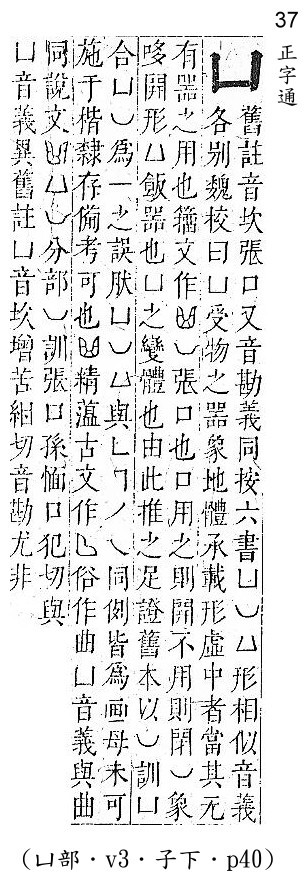 37
正字通
凵 舊註音坎張口又音勘義同按六書凵◡ㄩ形相似音義
各別魏校曰凵受物之器象地體承載形虛中者當其无
有器之用也籀文作◡張口也口用之則開不用則閉◡象
哆開形ㄩ飯器也凵之變體也由此推之足證舊本以◡訓凵
合凵◡爲一之誤肰凵◡ㄩ與𠃊𠃍丿乀同例皆爲画母未可
施于楷隸存備考可也精薀古文作俗作曲凵音義與曲
同說文ㄩ◡分部◡訓張口孫愐口犯切與
凵音義異舊註凵音坎增苦紺切音勘尤非
（凵部・v3・子下・p40）